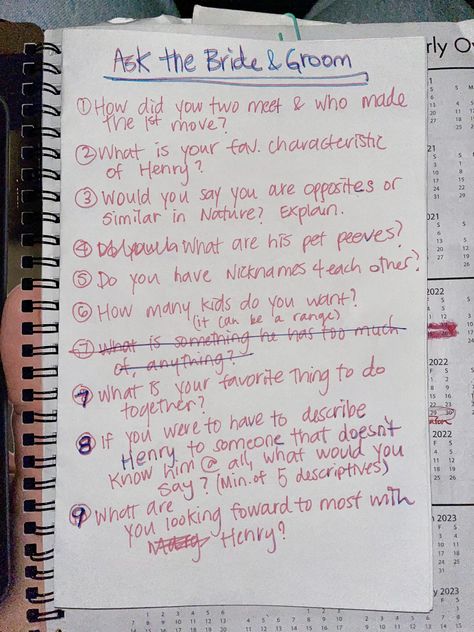 Ask the Bride & Groom
① How did you two meet & who made
the 1st move?
② What is your fav. characteristic
of Henry?
③ Would you say you are opposites or
similar in Nature? Explain.
④ What are his pet peeves?
⑤ Do you have Nicknames 4 each other?
⑥ How many kids do you want?
(it can be a range)
⑦ What is something he has too much
of anything?
7 What is your favorite thing to do
together?
8 If you were to have to describe
Henry to someone that doesn't
know him @ all, what would you
say? (Min. of 5 descriptives)
9 What are
you looking foward to most with
Henry?
rly Ov
2021
2022
2022
2022
2023
y 2023